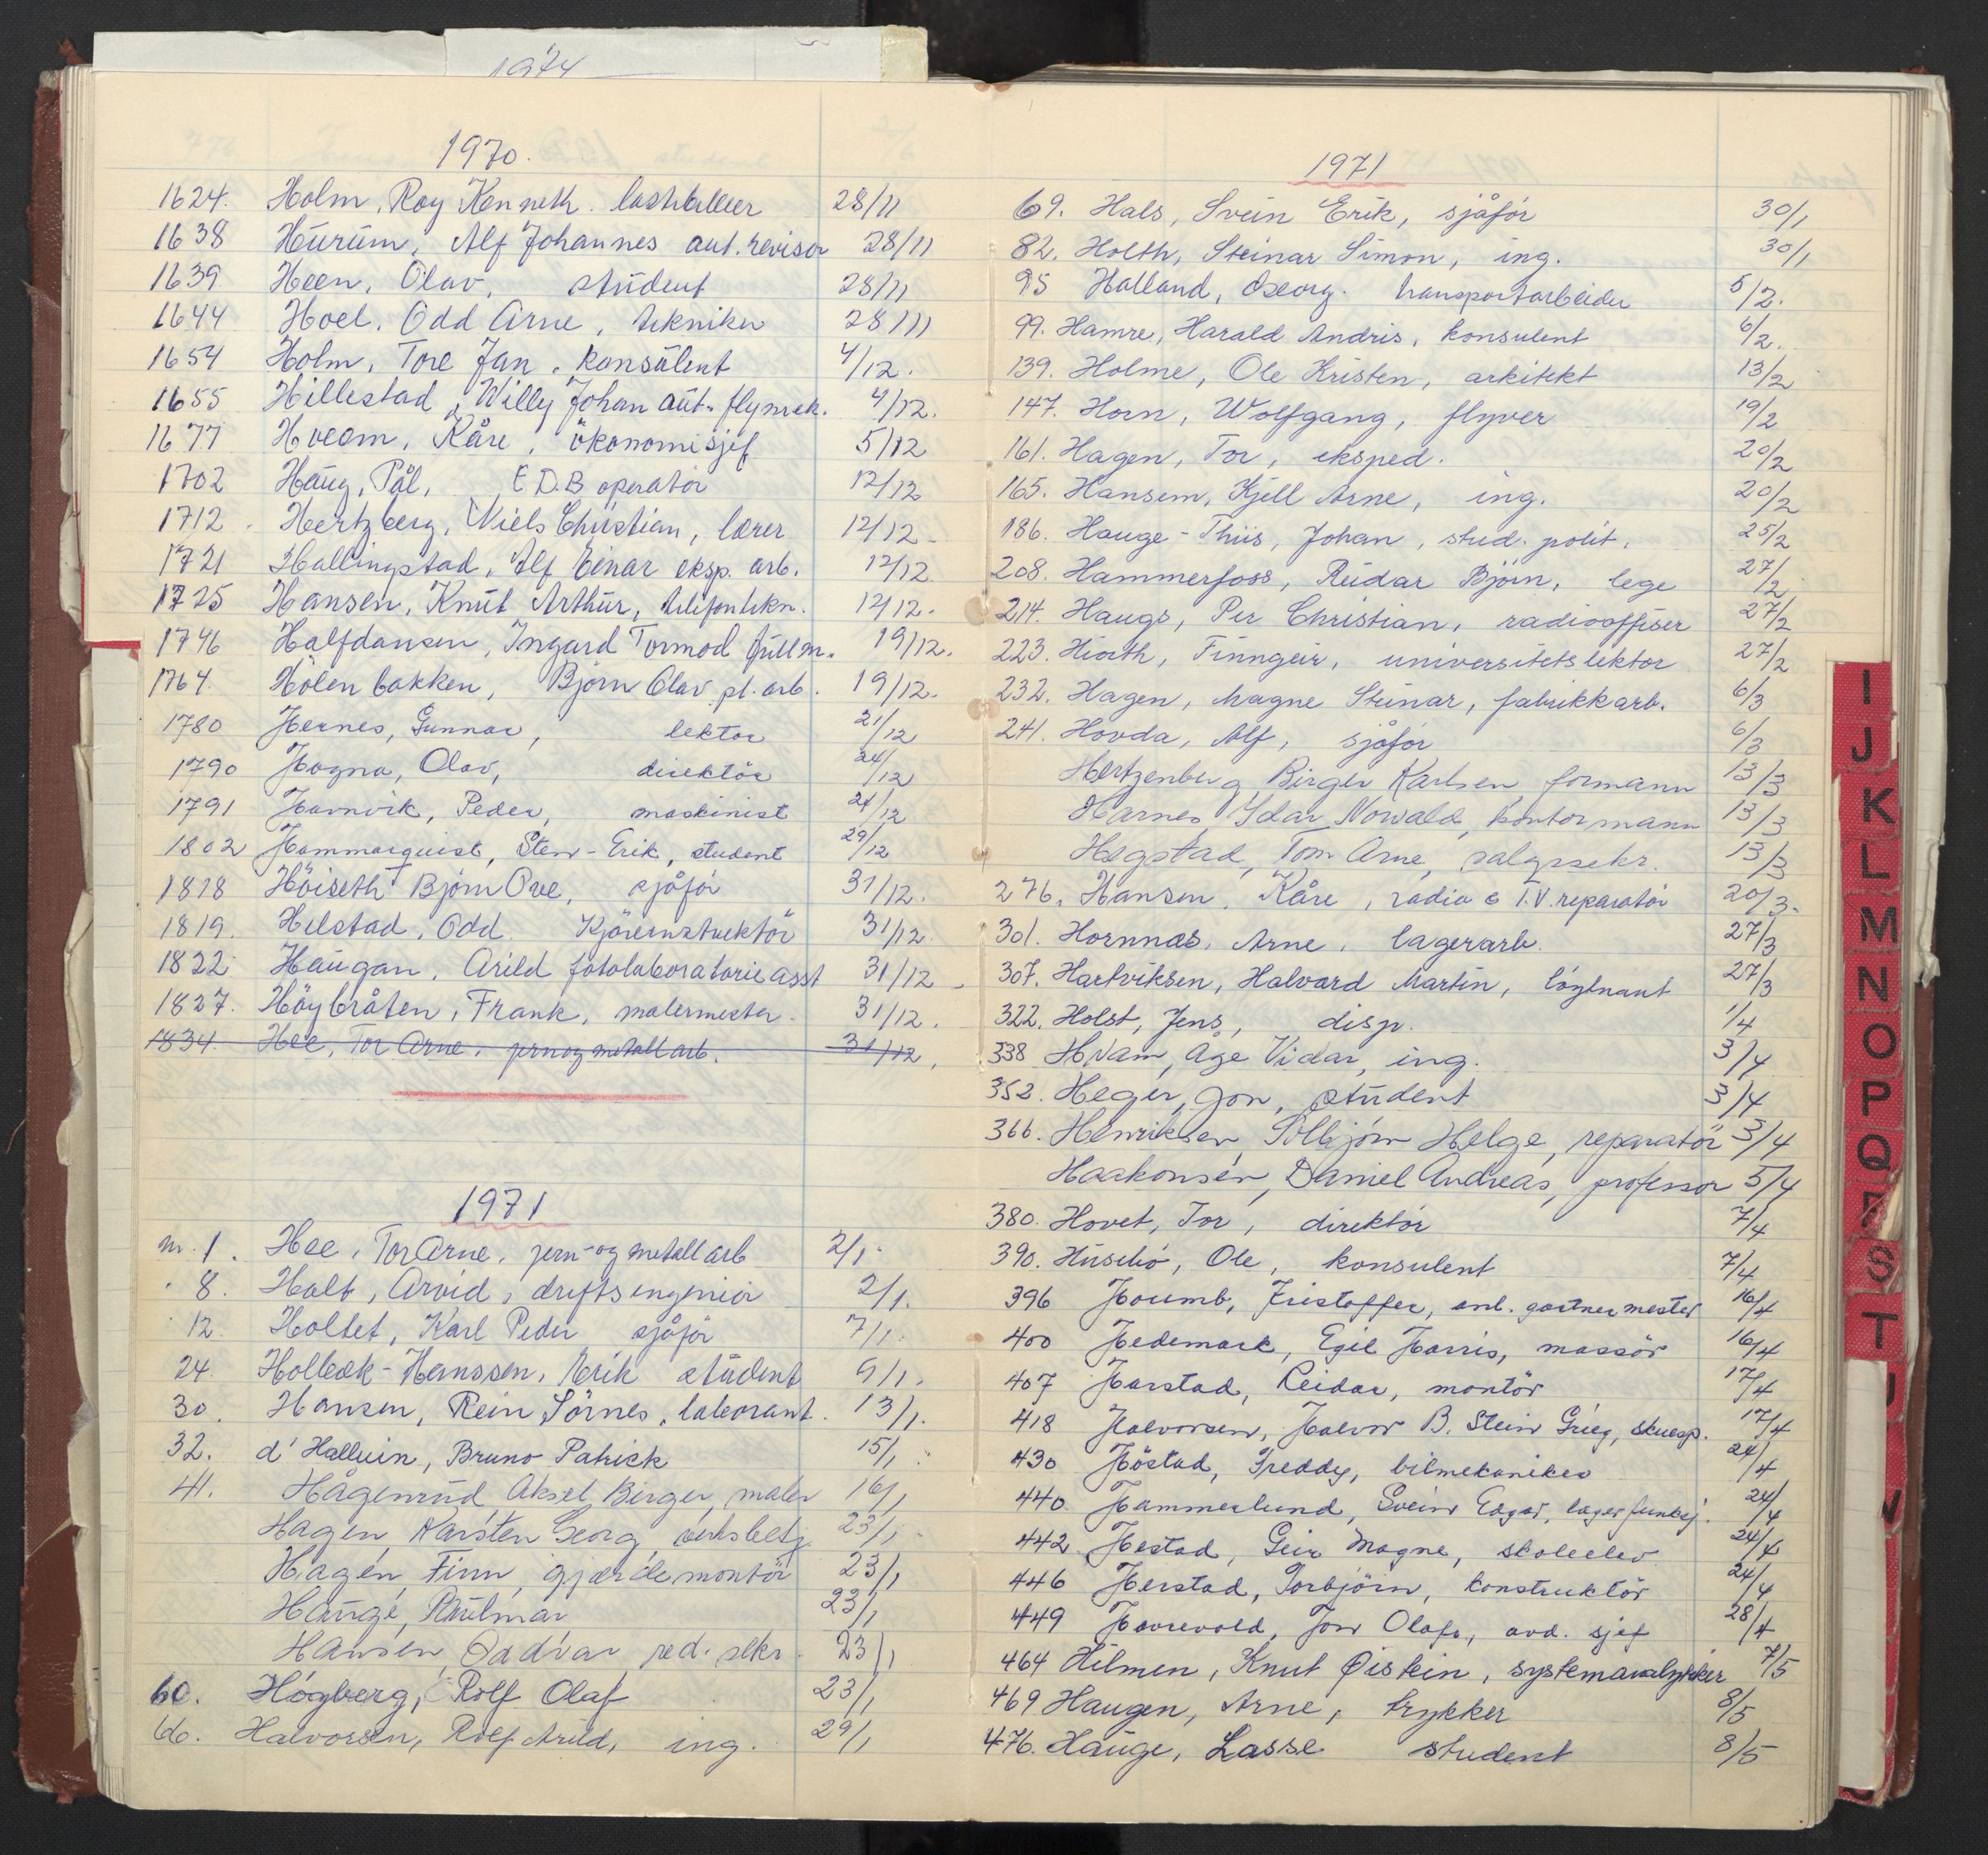 1974
1970.
1624. Holm, Roy Kenneth.
28/11
1638 Hurum, Alf Johannes aut. revisor 28/11
1639 Heen, Olav, student 28/11
1644 Hoel, Odd Arne, tekniker 28/11
1654 Holm, Tore Jan, konsulent 4/12.
1655 Hillestad, Willy Johan aut. flymek. 4/12.
1677 Hveem, Kåre, ökonomisjef 5/12
1702 Haug, Pål, E.D.B operatör 12/12
1712 Hertzberg, Niels Christian, lærer 12/12
1721 Hallingstad, Alf Einar eksp. arb. 12/12
1725 Hansen, Knut Arthur, telefontekn. 12/12.
1746 Halfdansen, Ingard Tormod 19/12.
1764. Hölenbakken, Björn Olav pl. arb. 19/12.
1780 Hernes, Gunnar, lektor 21/12
1790 Hogna, Olav, direktör 24/12
1791 Havnvik, Peder, maskinist 24/12
1802 Hammarquist, Sten-Erik, student 29/12
1818 Höiseth Björn Ove, sjåför 31/12.
1819. Helstad, Odd Kjöreinstruktör 31/12.
1822 Haugan, Arild fotolaboratorieasst 31/12
1827. Höybråten, Frank, malermester 31/12.
1834. Hee, Tor Arne, jern og metallarb. 31/12,
1971
nr. 1. Hee, Tor Arne, jern- og metallarb 2/1.
" 8. Holt, Arvid, driftsingeniör 2/1.
" 12. Holtet, Karl Peder sjåför 7/1.
24. Holbæk-Hanssen, Erik student 9/1.
30. Hansen, Rein Sörnes, laborant. 13/1.
32. d'Halluin, Bruno Patrick 15/1
41. Hågenrud, Aksel Birger, maler 16/1
Hagen, Karsten Georg, verksbetj 23/1
Hagen, Finn, gjærdemontör 23/1
Hauge, 23/1
Hansen, Oddvar red. sekr. 23/1
60. Högberg, Rolf Olaf 23/1
66. Halvorsen, Rolf Arild, ing. 29/1
1971
69. Hals, Svein Erik, sjåför 30/1
82. Holth, Steinar Simon, ing. 30/1
95 Halland, Georg. transportarbeider 5/2.
99. Hamre, Harald Andris, konsulent 6/2.
139. Holme, Ole Kristen, arkitekt 13/2
147. Horn, Wolfgang, flyver 19/2
161. Hagen, Tor, eksped. 20/2
165. Hansen, Kjell Arne, ing. 20/2
186. Hauge-Thiis, Johan, stud. polit. 25/2
208. Hammerfoss, Rudar Björn, lege 27/2
214. Haugs, Per Christian, radiooffiser 27/2
223. Hiorth, Finngeir, universitetslektor 27/2
232. Hagen, Magne Steinar, fabrikkarb. 6/3
241. Hovda, Alf, sjåför 6/3
Hertzenberg, Birger Karlsen, formann 13/3
Harnes, Idar Nowald, kontormann 13/3
Hegstad, Tom Arne, salgssekr. 13/3
276. Hansen, Kåre, radio & T.V. reparatör 20/3.
301. Hornnæs, Arne, lagerarb. 27/3
307. Hartviksen, Halvard Martin, löytnant 27/3
322. Holst, Jens, disp. 1/4
338 Hvam, Åge Vidar, ing. 3/4
352. Heger, Jon, student 3/4
366. Henriksen, Helge, reparatör 3/4
Haakonsen, Daniel Andreas, professor 5/4
380. Hovet, Tor, direktör 7/4
390. Husebö, Ole, konsulent 7/4
396 Houmb, Kristoffer, anl. gartnermester 16/4
400 Hedemark, Egil Harris, massör 16/4
407 Harstad, Reidar, montör 17/4
418 Halvorsen, Halvor B. Stein Grieg, skuesp. 17/4
430 Höstad, Freddy, bilmekaniker 24/4
440 Hammerlund, Svein Edgar, lagerfunksj. 24/4
442 Hestad, Geir Magne, skoleelev 24/4
446 Herstad, Torbjörn, konstruktör 24/4
449 Haavevold, Jon Olaf, avd. sjef 28/4
464 Hilmen, Knut Øistein, systemanalytiker 7/5
469 Haugen, Arne, trykker 8/5
476. Hauge, Lasse student 8/5
I
J
K
L
M
N
O
P
Q
R
S
T
U
V